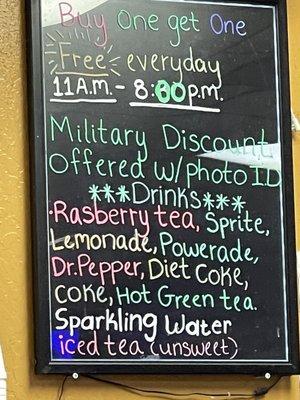 Buy One get One
Free everyday
11A.M. - 8:00p.m.
Military Discount
Offered w/photo ID
***Drinks***
·Rasberry tea, Sprite,
Lemonade, Powerade,
Dr.Pepper, Diet Coke,
Coke, Hot Green tea.
Sparkling Water
iced tea (unsweet)